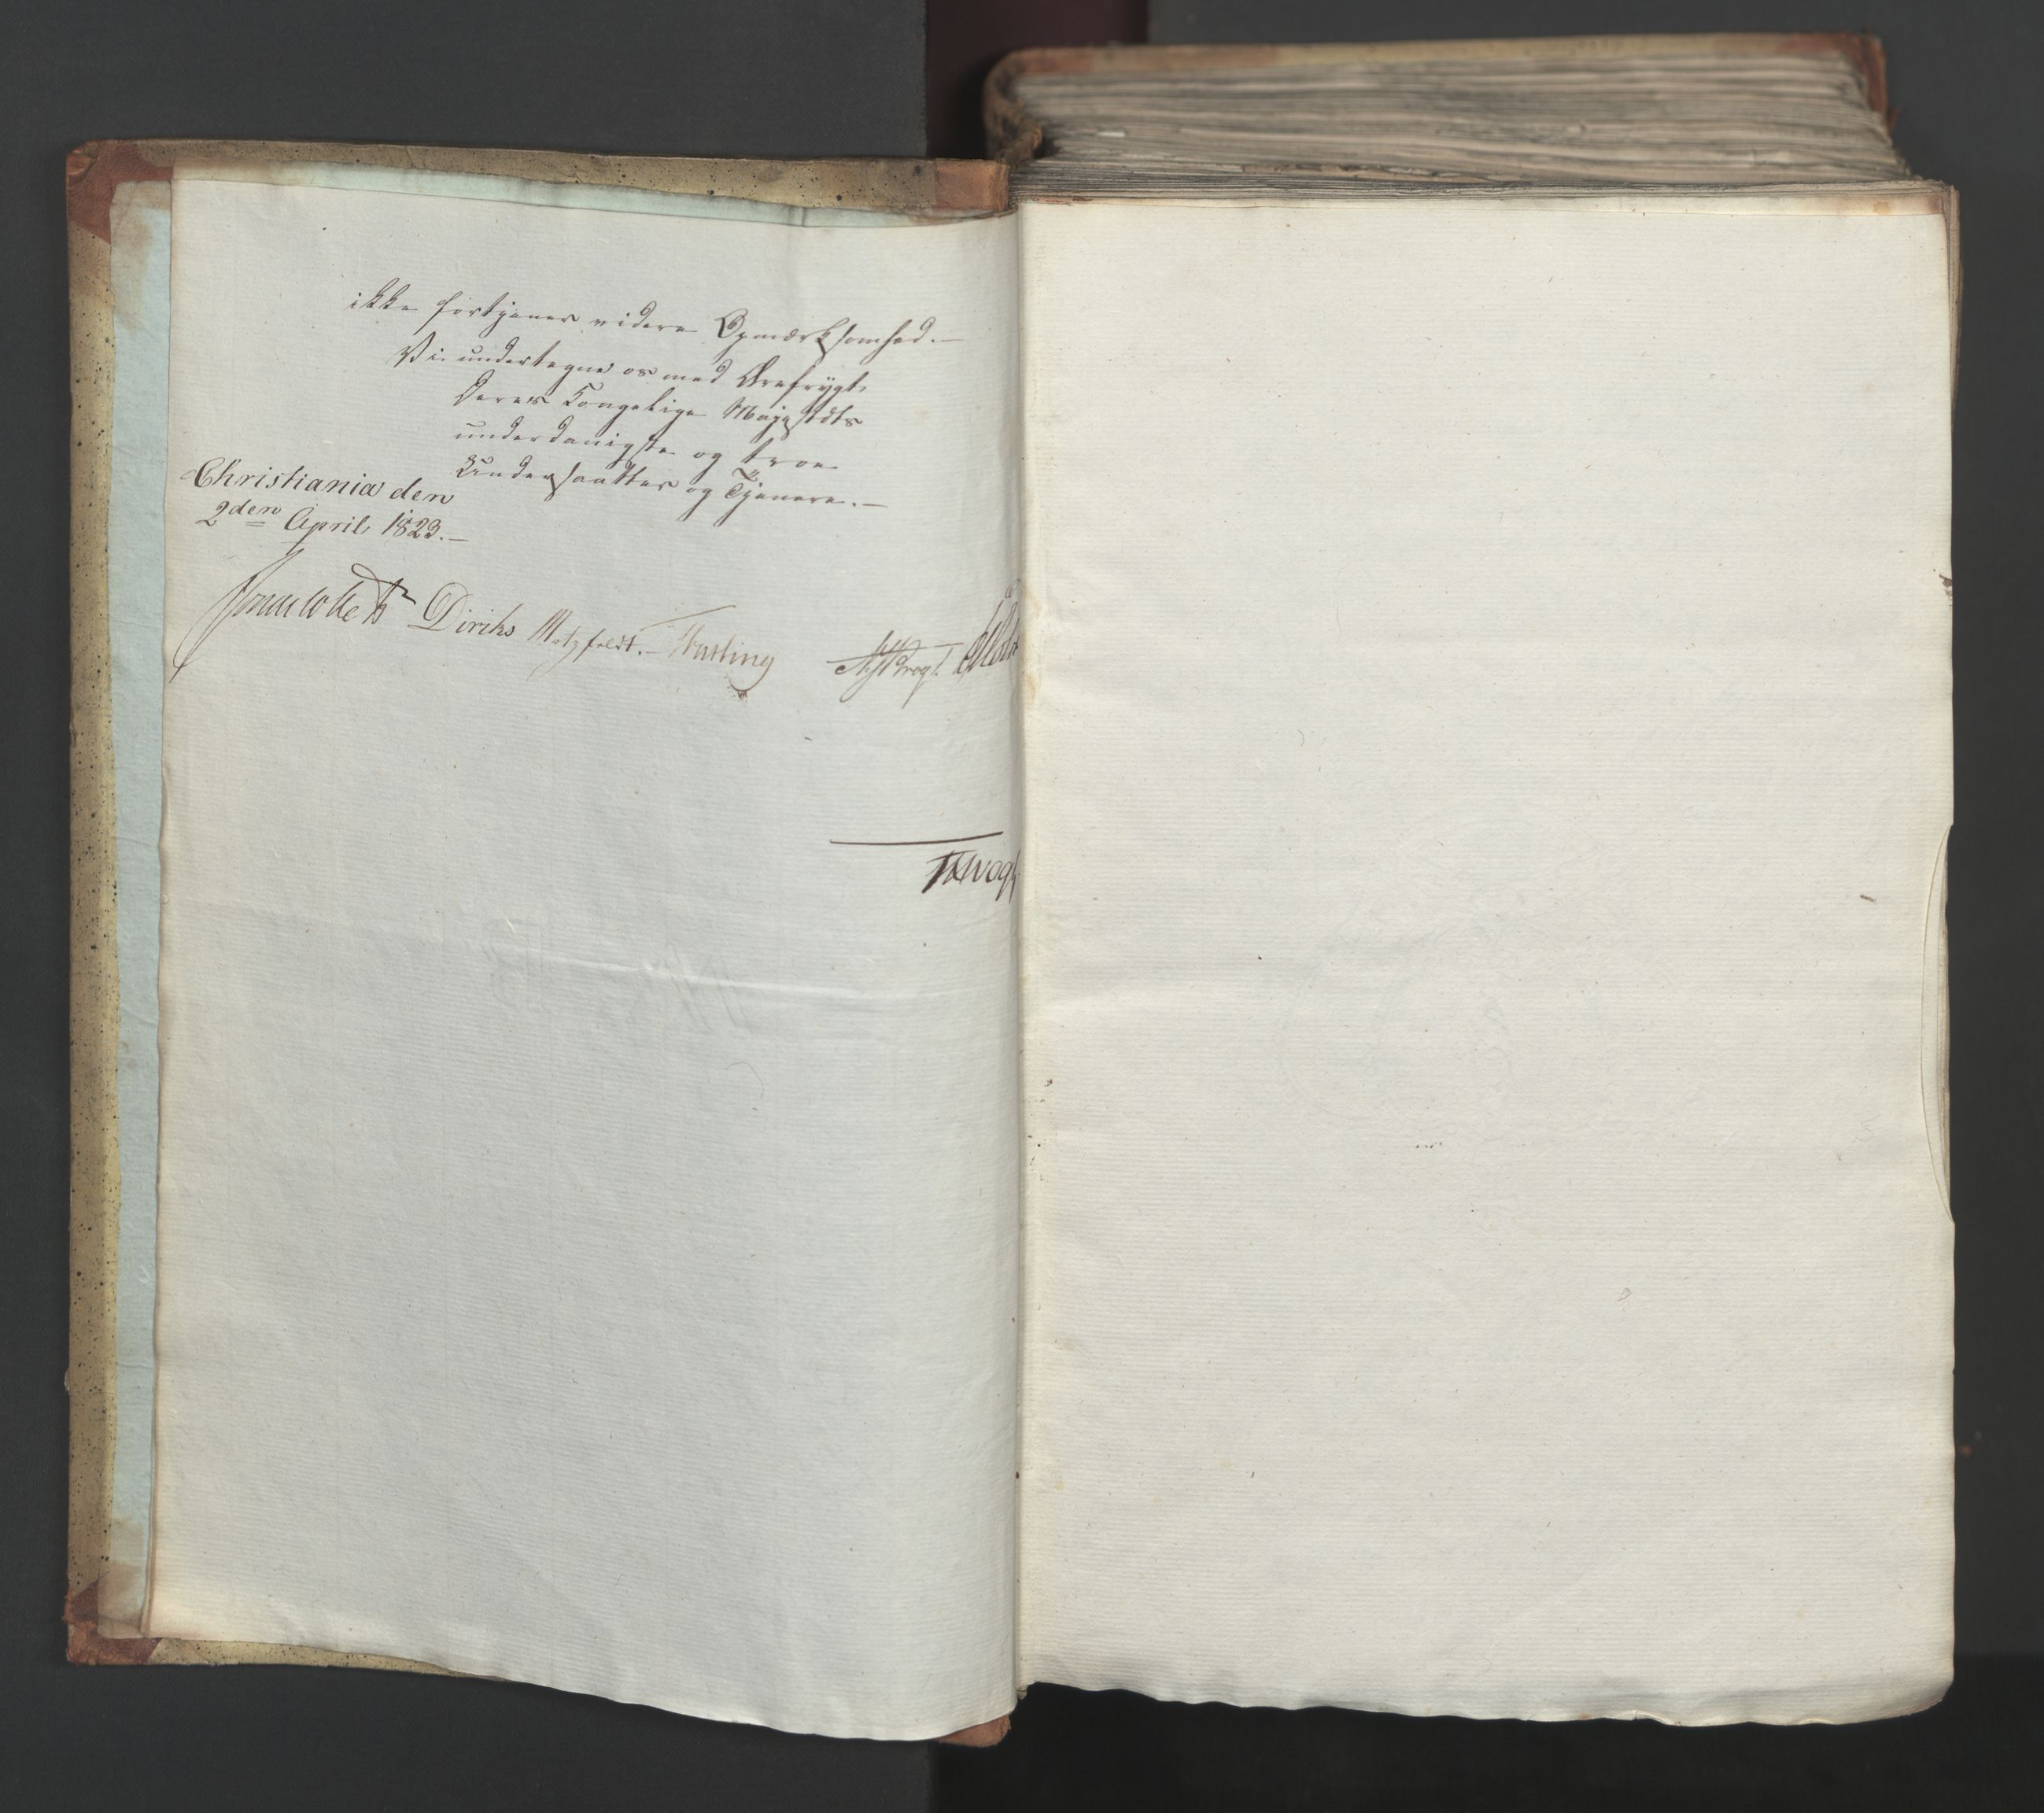 ikke fortjener videre Opmærksomhed.—
Vi undertegne os med Ærefrygt
Deres Kongelige Majestæts
underdanigste og troe
Undersaatter og Tjenere.—
Christiania den
2den April 1823.—
Jonas Collett Diriks Motzfeldt.— Fasting